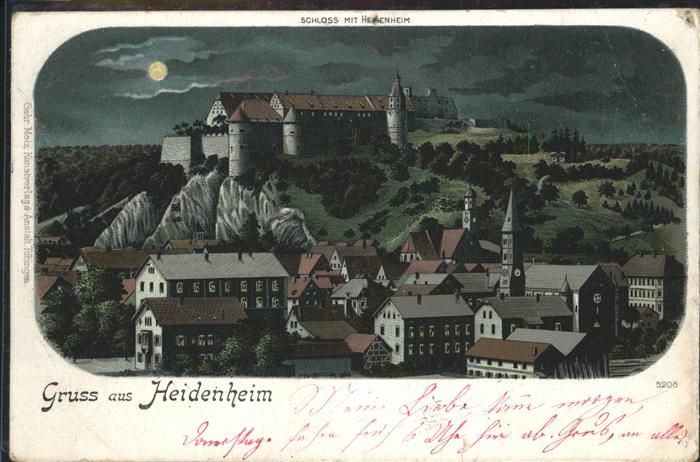 SCHLOSS MIT HEIDENHEIM
Gebr. Metz, Kunstverlags-Anstalt Tübingen.
Gruss aus Heidenheim
5208
Meine Liebe morgen
früh 6 Uhr hier ab. Gruß, an alle